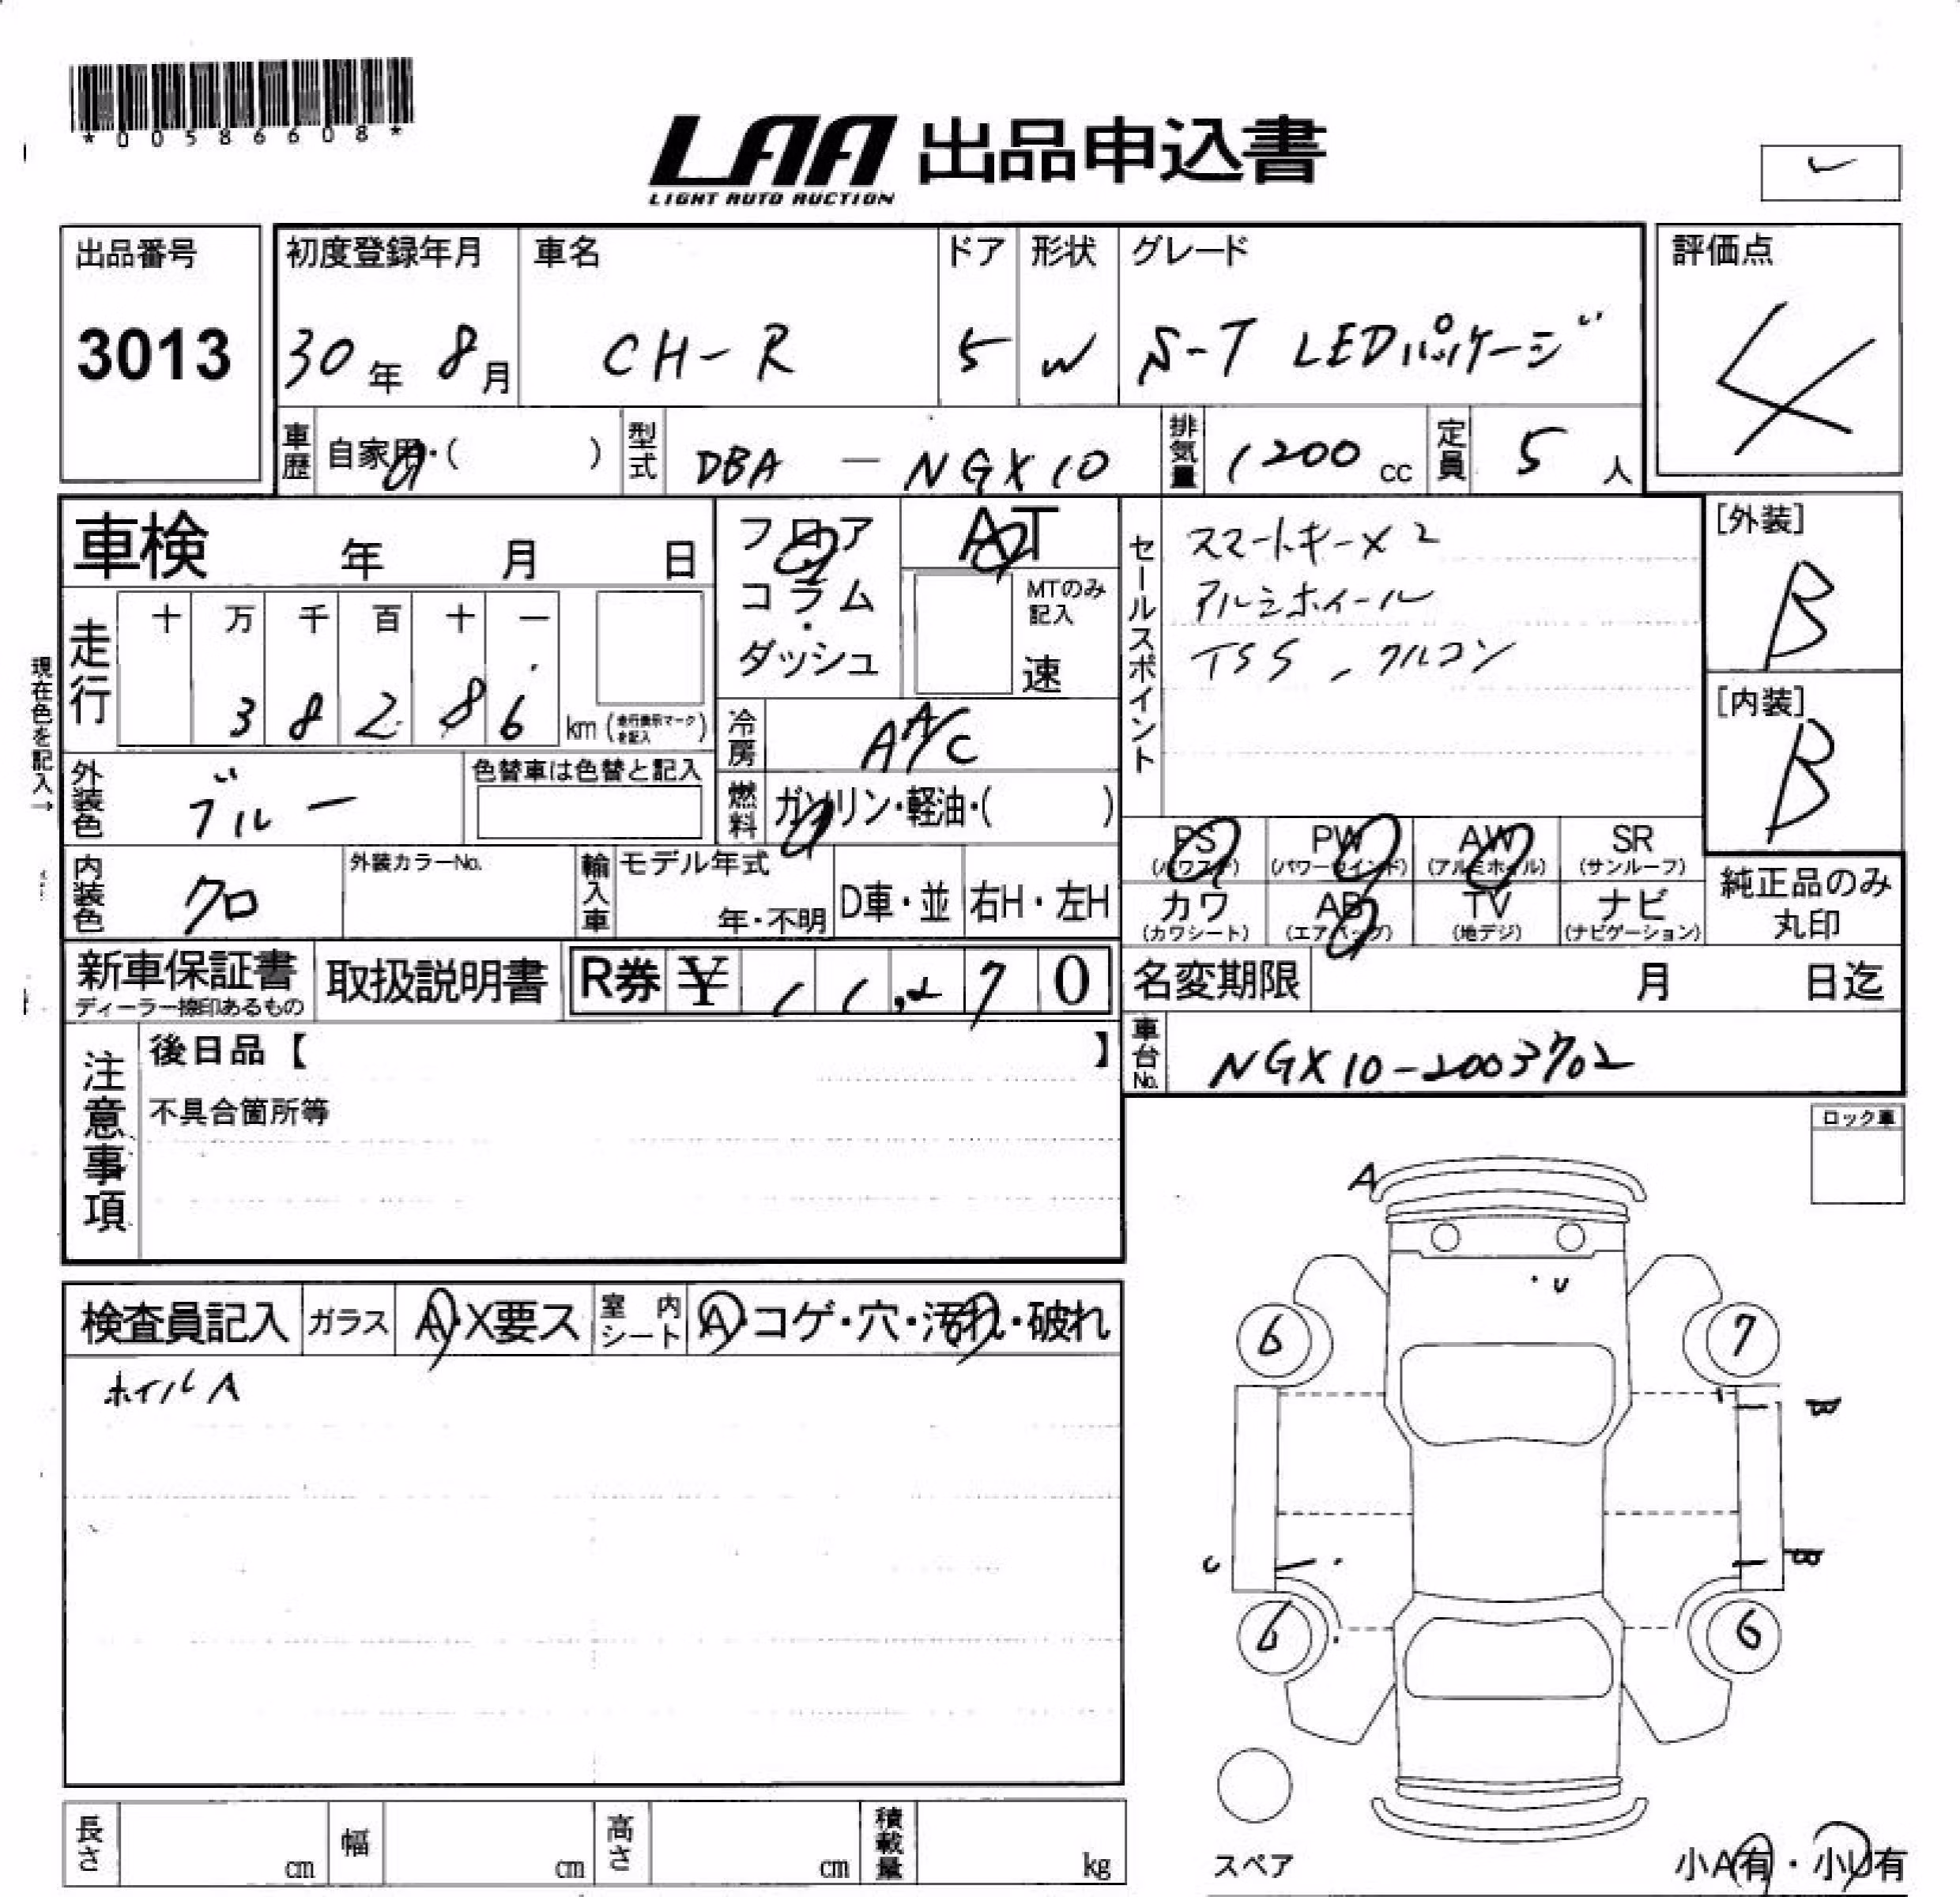 *00586608*
LAA 出品申込書
LIGHT AUTO AUCTION
出品番号
3013
初度登録年月 車名 ドア 形状 グレード
30年 8月 CH-R 5 W S-T LEDパッケージ
評価点
4
車歴 自家用・( ) 型式 DBA - NGX10 排気量 1200 cc 定員 5 人
車検 年 月 日
フロア・コラム・ダッシュ
AT
MTのみ記入
速
セールスポイント
スマートキー×2
アルミホイール
TSS、クルコン
[外装]
B
[内装]
B
現在色を記入→
走行 十 万 千 百 十 一
3 8 2 8 6 km (走行表示マークを記入)
冷房 AA/C
外装色 ブルー 色替車は色替と記入
燃料 ガソリン・軽油・( )
内装色 クロ 外装カラーNo. 輸入車 モデル年式 年・不明 D車・並 右H・左H
PS (パワステ) PW (パワーウインド) AW (アルミホイル) SR (サンルーフ)
カワ (カワシート) AB (エアバッグ) TV (地デジ) ナビ (ナビゲーション)
純正品のみ丸印
新車保証書 ディーラー捺印あるもの 取扱説明書 R券 ¥ 11,270
名変期限 月 日迄
車台No. NGX10-2003702
注意事項
後日品【 】
不具合箇所等
ロック車
A
U
6 7
B
U B
6 6
検査員記入 ガラス A・X要ス 室内シート A・コゲ・穴・汚れ・破れ
ホイルA
長さ cm 幅 cm 高さ cm 積載量 kg
スペア
小A有・小U有